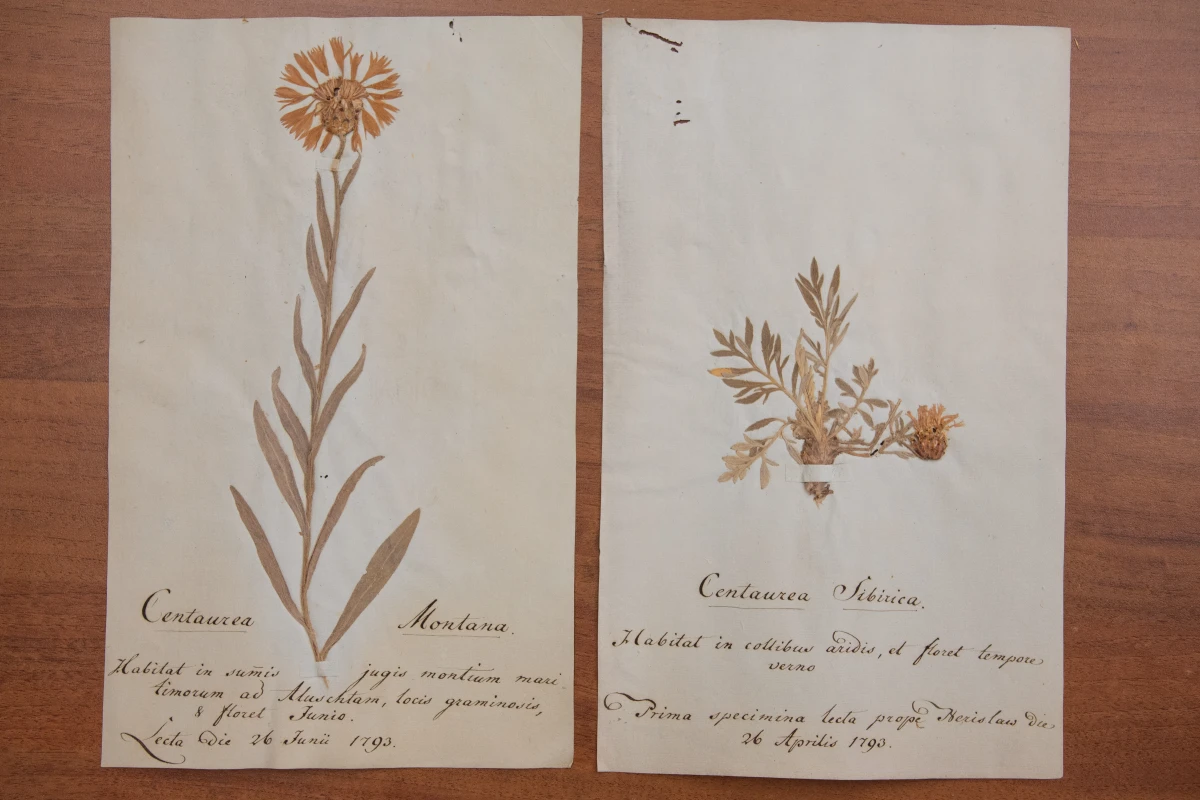 Centaurea Montana.
Habitat in sum̃is jugis montium mari-
timorum ad Aluschtam, locis graminosis,
& floret Junio.
Lecta Die 26 Junii 1793.
Centaurea Sibirica.
Habitat in collibus aridis, et floret tempore
verno
Prima specimina lecta prope Die
26 Aprilis 1793.